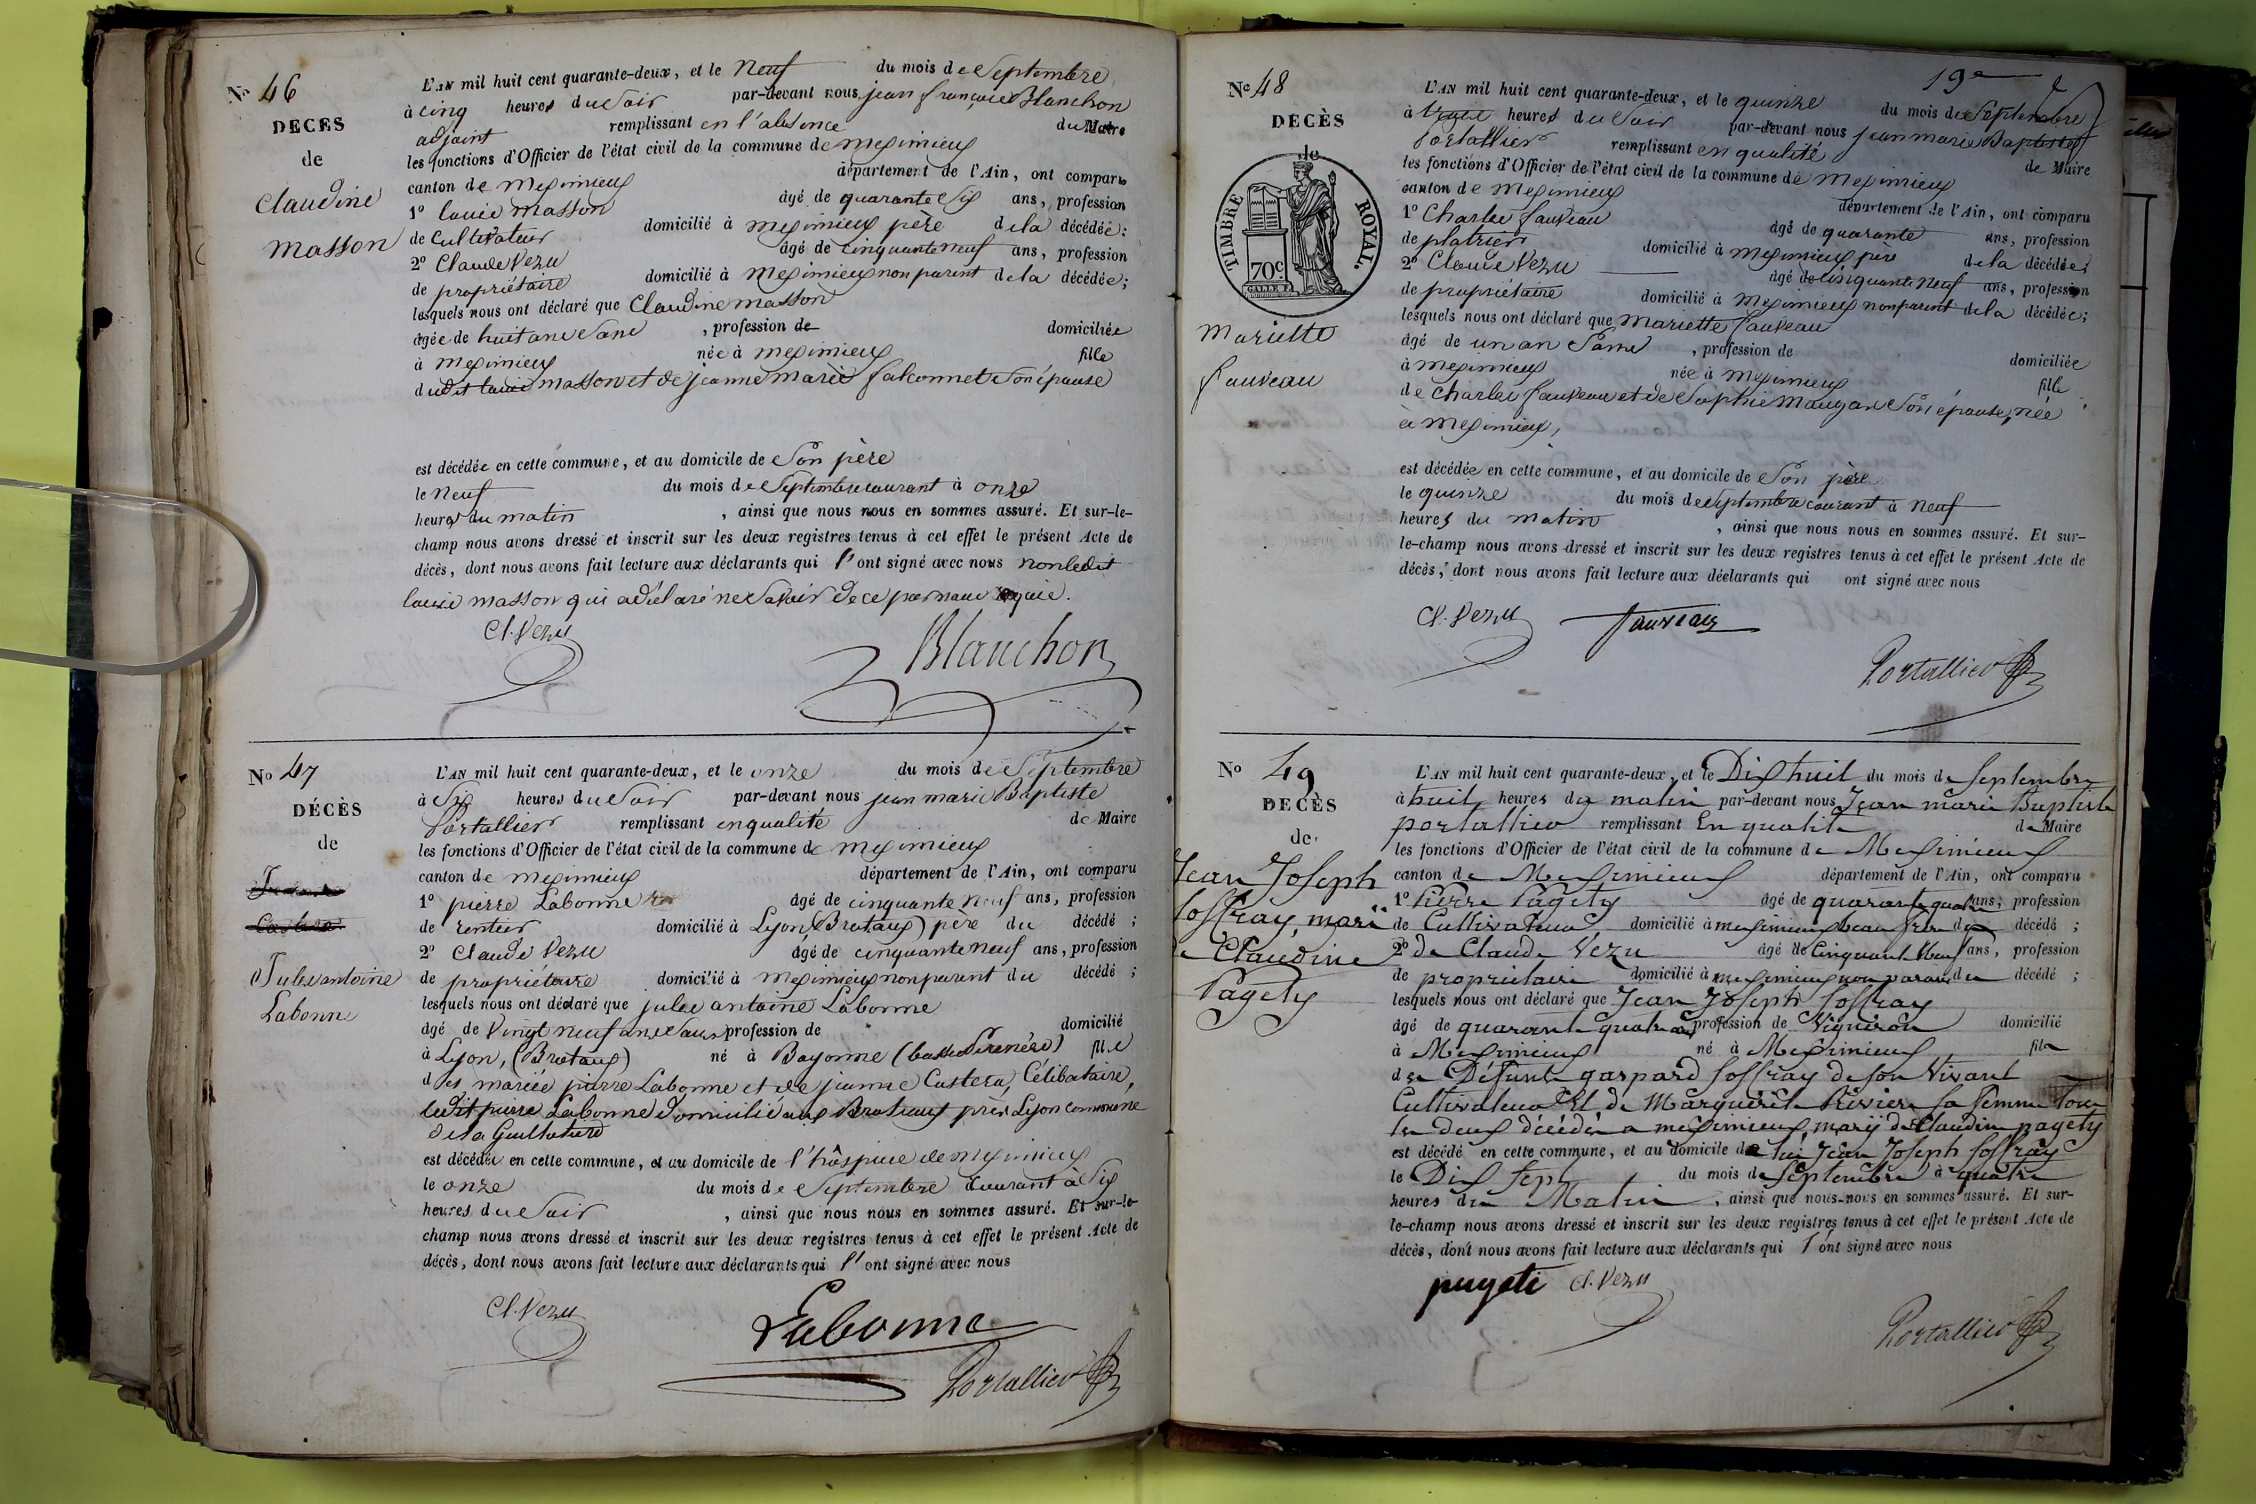 No 46
DECES
de
Claudine
Masson
L'AN mil huit cent quarante-deux, et le neuf du mois de Septembre
à cinq heures du soir par-devant nous jean françois Blanchon
adjoint remplissant en l'absence du Maire
les fonctions d'Officier de l'état civil de la commune de meximieux
canton de meximieux département de l'Ain, ont comparu
1º louis masson âgé de quarante six ans, profession
de Cultivateur domicilié à meximieux père de la décédée;
2º Claude Vezu âgé de cinquante neuf ans, profession
de propriétaire domicilié à meximieux non parent de la décédée;
lesquels nous ont déclaré que Claudine masson
âgée de huit ans sans , profession de domiciliée
à meximieux née à meximieux fille
dudit louis masson et de jeanne marie falconnet son épouse
est décédée en cette commune, et au domicile de son père
le neuf du mois de Septembre courant à onze
heures du matin , ainsi que nous nous en sommes assuré. Et sur-le-
champ nous avons dressé et inscrit sur les deux registres tenus à cet effet le présent Acte de
décès, dont nous avons fait lecture aux déclarants qui l'ont signé avec nous non ledit
louis masson qui a déclaré ne savoir de ce par nous requis.
Cl. Vezu
Blanchon
No 47
DÉCÈS
de
Jules antoine
Labonne
L'AN mil huit cent quarante-deux, et le onze du mois de Septembre
à Six heures du soir par-devant nous jean marie Baptiste
Portallier remplissant en qualité de Maire
les fonctions d'Officier de l'état civil de la commune de meximieux
canton de meximieux département de l'Ain, ont comparu
1º pierre Labonne âgé de cinquante neuf ans, profession
de rentier domicilié à Lyon (Brotaux) père du décédé;
2º Claude Vezu âgé de cinquante neuf ans, profession
de propriétaire domicilié à meximieux non parent du décédé;
lesquels nous ont déclaré que jules antoine Labonne
âgé de Vingt neuf ans sans profession de domicilié
à Lyon, (Brotaux) né à Bayonne (basses Pirenées) fils
des mariés pierre Labonne et de jeanne Castera, Célibataire,
ledit pierre Labonne domicilié aux Brotaux près Lyon commune
de la Guillotière
est décédé en cette commune, et au domicile de l'hôspice de meximieux
le onze du mois de Septembre courant à Six
heures du soir , ainsi que nous nous en sommes assuré. Et sur-le-
champ nous avons dressé et inscrit sur les deux registres tenus à cet effet le présent Acte de
décès, dont nous avons fait lecture aux déclarants qui l'ont signé avec nous
Cl. Vezu
Labonne
Portallier
19e
No 48
DÉCÈS
de
TIMBRE ROYAL.
70c
Mariette
fauveau
L'AN mil huit cent quarante-deux, et le quinze du mois de Septembre
à heures du soir par-devant nous jean marie Baptiste
Portallier remplissant en qualité de Maire
les fonctions d'Officier de l'état civil de la commune de meximieux
canton de meximieux département de l'Ain, ont comparu
1º Charles fauveau âgé de quarante ans, profession
de platrier domicilié à meximieux père de la décédée;
2º Claude Vezu âgé de cinquante neuf ans, profession
de propriétaire domicilié à meximieux non parent de la décédée;
lesquels nous ont déclaré que mariette fauveau
âgé de un an sans , profession de domiciliée
à meximieux née à meximieux fille
de Charles fauveau et de Sophie Son épouse, née
à meximieux,
est décédée en cette commune, et au domicile de Son père
le quinze du mois de Septembre courant à neuf
heures du matin , ainsi que nous nous en sommes assuré. Et sur-
le-champ nous avons dressé et inscrit sur les deux registres tenus à cet effet le présent Acte de
décès, dont nous avons fait lecture aux déclarants qui ont signé avec nous
Cl. Vezu fauveau
Portallier
No 49
DÉCÈS
de
Jean Joseph
Joffray, mari
de Claudine
Pagety
L'AN mil huit cent quarante-deux, et le Dix huit du mois de Septembre
à huit heures du matin par-devant nous Jean marie Baptiste
portallier remplissant En qualité de Maire
les fonctions d'Officier de l'état civil de la commune de Meximieux
canton de Meximieux département de l'Ain, ont comparu
1º Pierre Pagety âgé de quarante quatre ans, profession
de Cultivateur domicilié à meximieux beau frère du décédé;
2º de Claude Vezu âgé de Cinquante Neuf ans, profession
de propriétaire domicilié à meximieux non parant du décédé;
lesquels nous ont déclaré que Jean Joseph Joffray
âgé de quarante quatre ans profession de Vigneron domicilié
à Meximieux né à Meximieux fils
de Défunt gaspard Joffray de son Vivant
Cultivateur Et de Marguerite Rivière sa femme tous
les deux décédés a meximieux, mary de Claudine pagety
est décédé en cette commune, et au domicile de lui Jean Joseph Joffray
le Dix sept du mois de Septembre à quatre
heures du Matin , ainsi que nous nous en sommes assuré. Et sur-
le-champ nous avons dressé et inscrit sur les deux registres tenus à cet effet le présent Acte de
décès, dont nous avons fait lecture aux déclarants qui l'ont signé avec nous
pugeti Cl. Vezu
Portallier